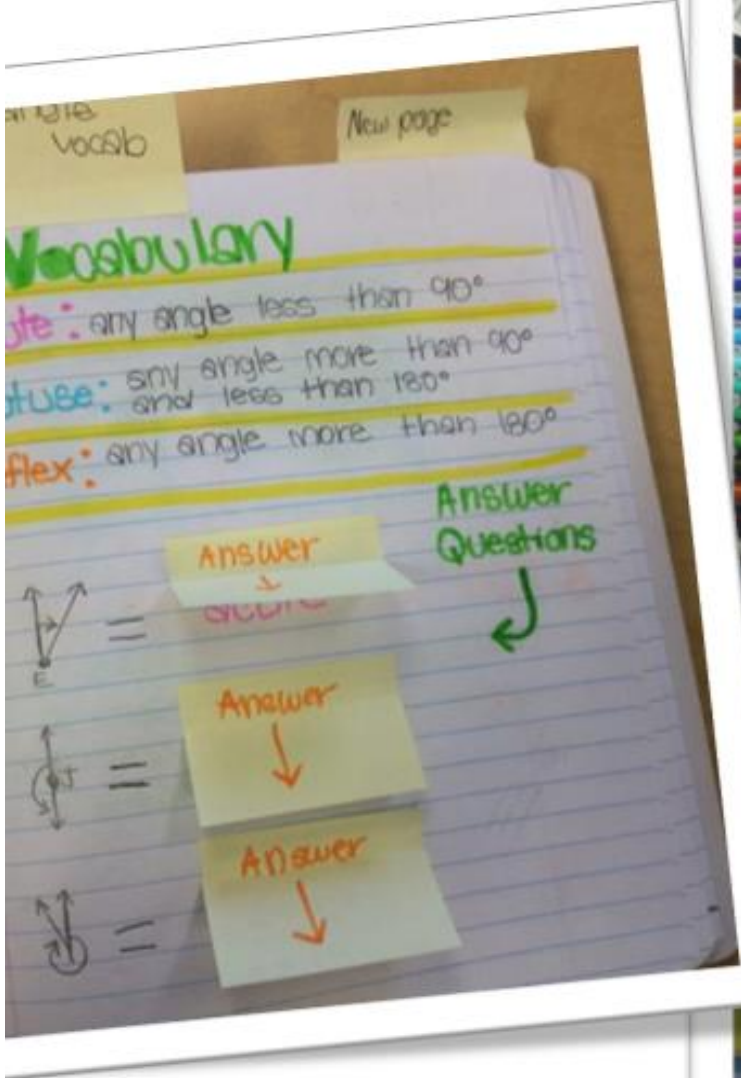 vocab
New page
Vocabulary
ute: any angle less than 90°
tuse: any angle more than 90°
and less than 180°
flex: any angle more than 180°
Answer
Questions
Answer
=
E
Answer
J
=
Answer
=